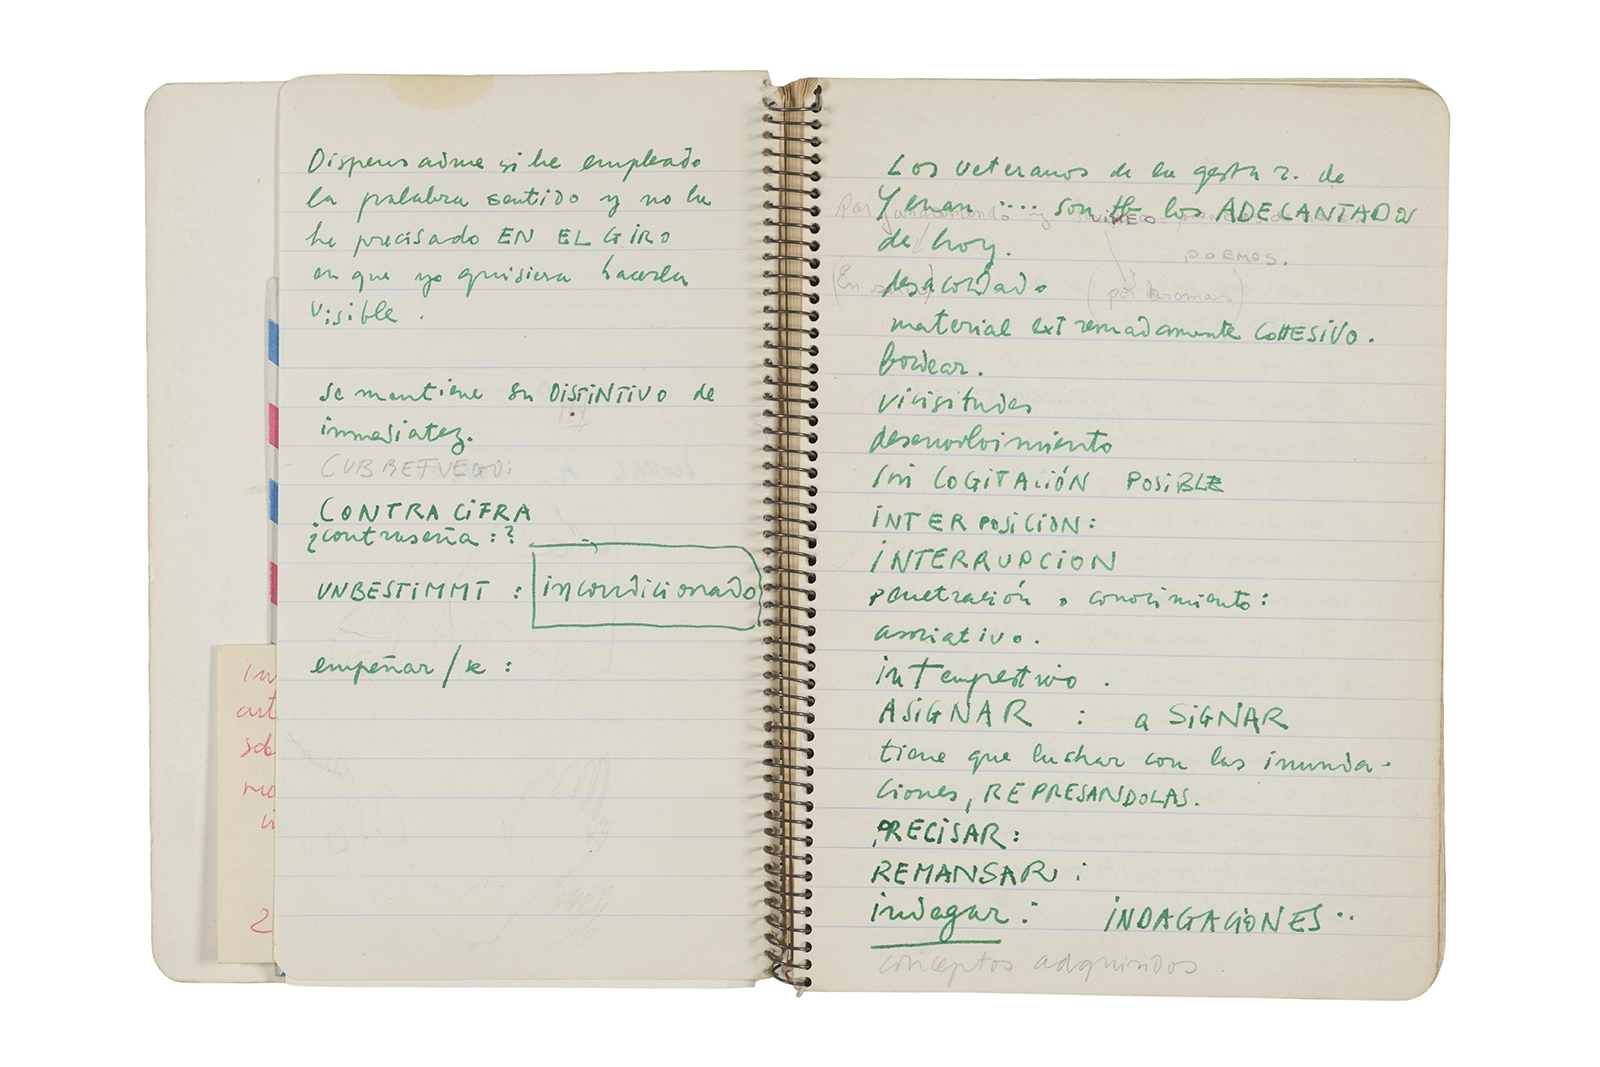 Dispensadme si he empleado
la palabra sentido y no la
he precisado EN EL GIRO
en que yo quisiera hacerla
visible.
se mantiene su DISTINTIVO de
inmediatez.
CUBREFUEGO:
CONTRACIFRA
¿contraseña:?
UNBESTIMMT : incondicionado
empeñar/se :
In
art
sob
mo
ci
2
Los veteranos de la gesta r. de
Yenan .... son los ADELANTADOS
de hoy.
POEMAS.
desacordado
(por bromas)
material extremadamente COHESIVO.
bordear.
vicisitudes
desenvolvimiento
sin COGITACIÓN POSIBLE
INTERPOSICION:
INTERRUPCION
penetración, conocimiento:
asociativo.
intempestivo.
ASIGNAR : a SIGNAR
tiene que luchar con las inunda-
ciones, REPRESANDOLAS.
PRECISAR:
REMANSAR:
indagar: INDAGACIONES..
conceptos adquiridos